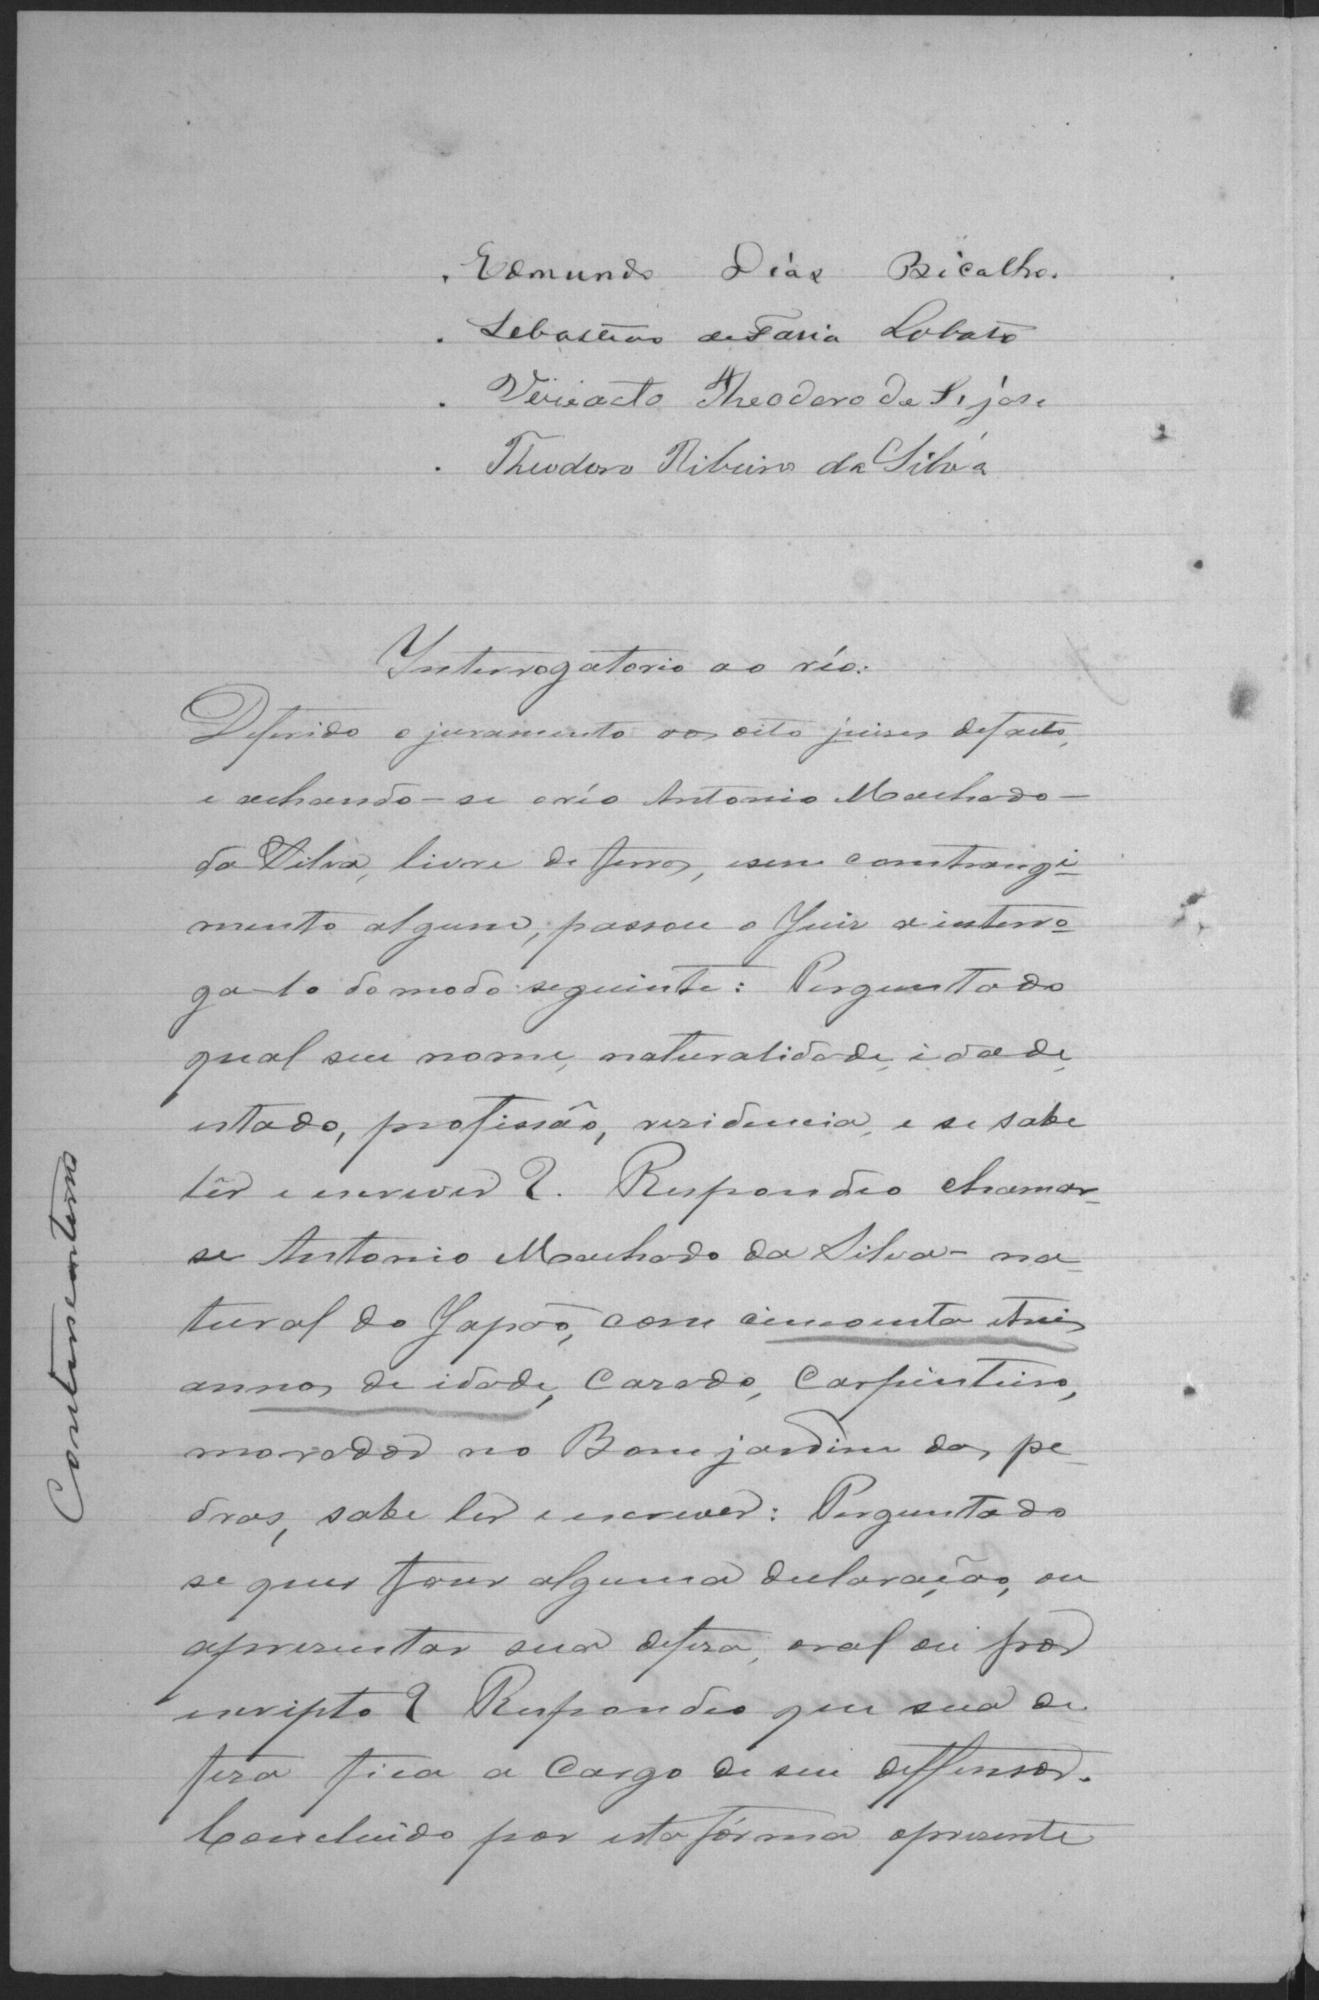 Edmundo Dias Bicalho.
Sebastião de Faria Lobato
Viriacto Theodoro de S. José
Theodoro Ribeiro da Silva
Interrogatorio ao réo:
Deferido o juramento aos oito juises de facto,
e achando-se o réo Antonio Machado
da Silva, livre de ferros, e sem constrangi-
mento algum, passou o Juiz a interro-
ga-lo do modo seguinte: Perguntado
qual seu nome, naturalidade, idade,
estado, profissão, rezidencia, e se sabe
lêr e escrever? Respondeo chamar-
se Antonio Machado da Silva- na-
tural do Japão, com cincoenta e treis
annos de idade, cazado, carpinteiro,
morador no Bom jardim das pe-
dras, sabe ler e escrever: Perguntado
se quer fazer alguma declaração, ou
aprezentar sua defeza, oral ou por
escripto? Respondeo que sua de
feza fica a cargo de seu deffensor.
Concluido por esta fórma o prezente